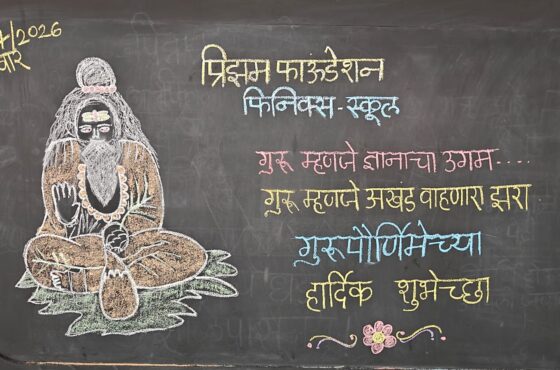 /2026
वार
प्रिझम फाऊंडेशन
फिनिक्स-स्कूल
गुरू म्हणजे ज्ञानाचा उगम....
गुरू म्हणजे अखंड वाहणारा झरा
गुरूपौर्णिमेच्या
हार्दिक शुभेच्छा